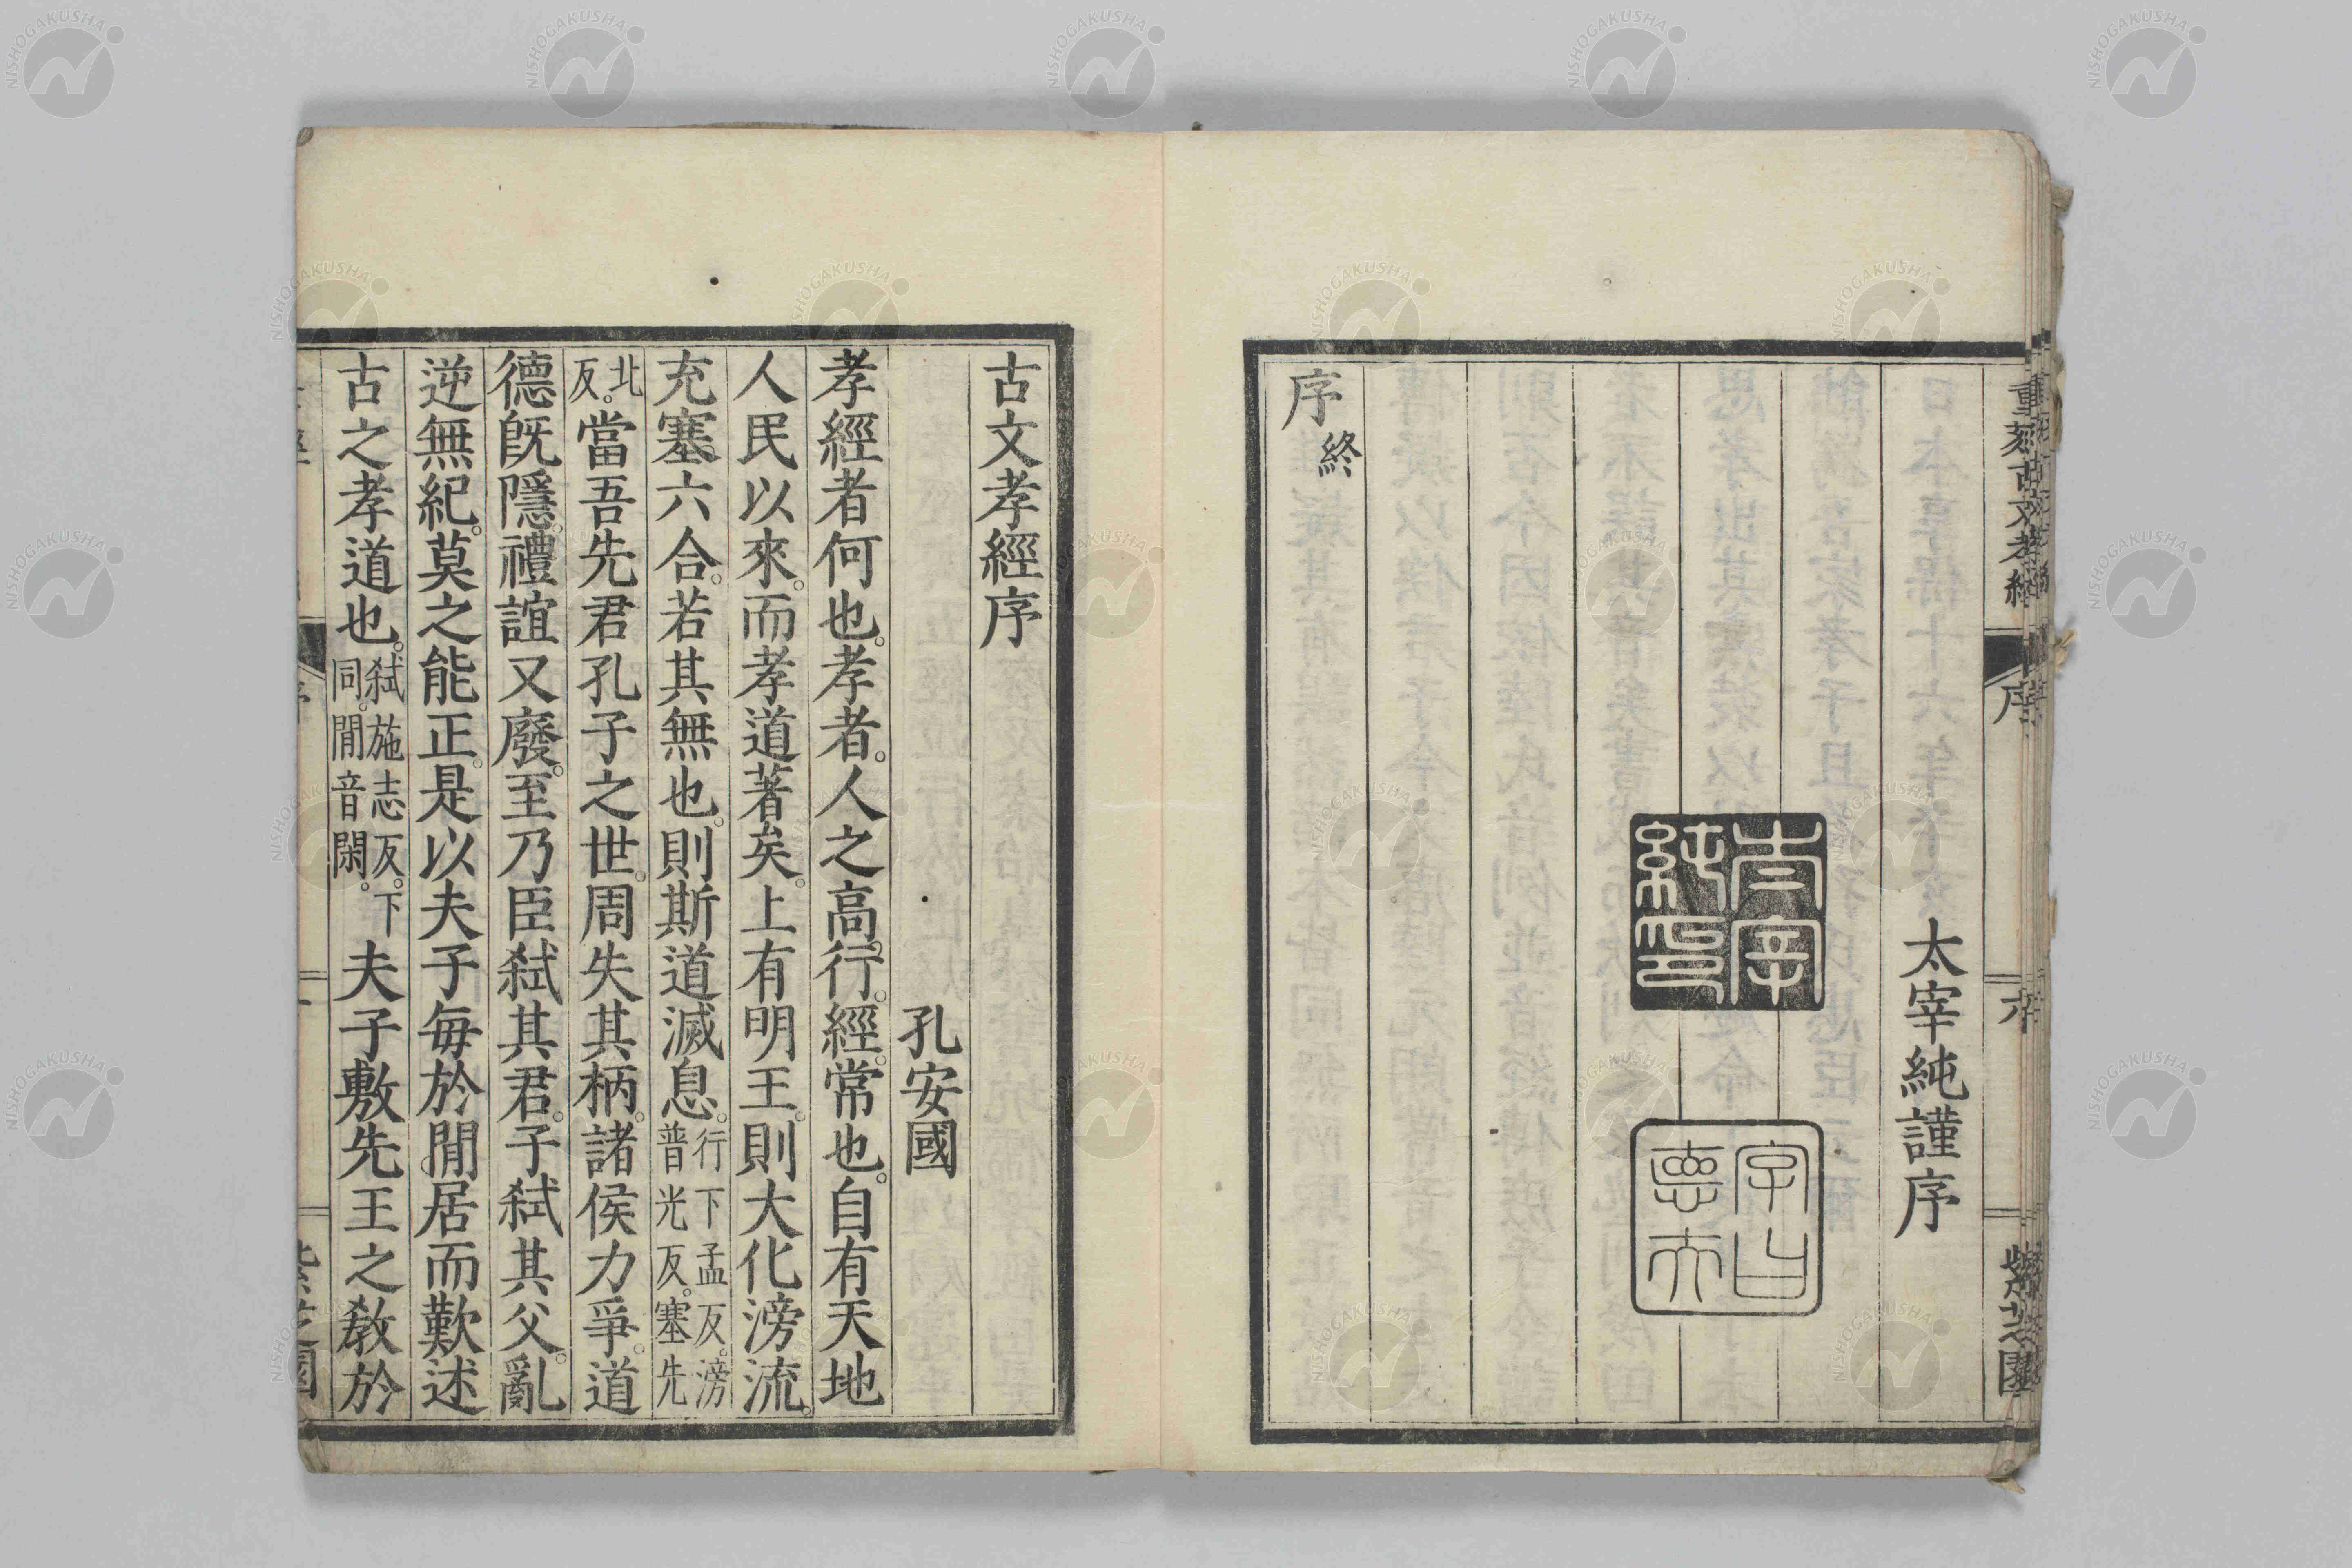 太宰純謹序
太宰純印
字曰德夫
序終
古文孝經序
孔安國
孝經者何也。孝者。人之高行。經。常也。自有天地
人民以來。而孝道著矣。上有明王。則大化滂流。
充塞六合。若其無也。則斯道滅息。行下孟反。滂普光反。塞先
北反。當吾先君孔子之世。周失其柄。諸侯力爭。道
德既隱。禮誼又廢。至乃臣弑其君。子弑其父。亂
逆無紀。莫之能正。是以夫子每於閒居而歎述
古之孝道也。弑施志反。下同。閒音閑。夫子敷先王之敎於
NISHOGAKUSHA